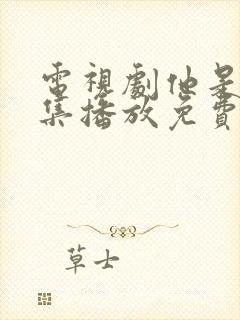 電視劇他是
集播放免費
草士